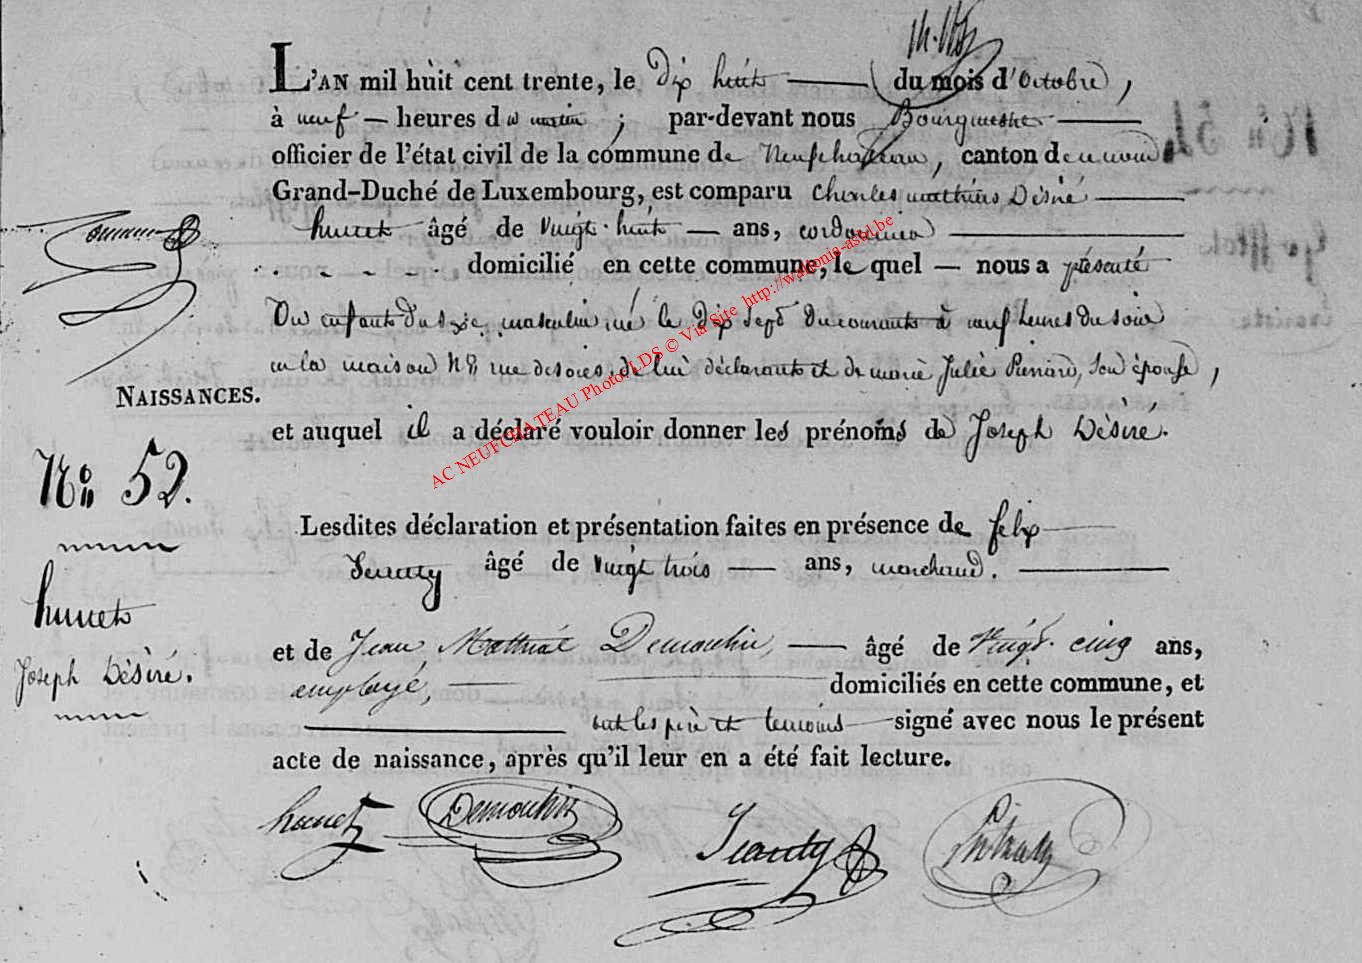 L'AN mil huit cent trente, le Dix huit du mois d'Octobre,
à neuf heures du matin; par-devant nous Bourgmestre
officier de l'état civil de la commune de Neufchateau, canton du nom
Grand-Duché de Luxembourg, est comparu Charles Mathieu Désiré
hunet âgé de Vingt-huit ans, cordonnier
domicilié en cette commune, le quel nous a présenté
Un enfant du sexe masculin né le Dix Sept du courant à neuf heures du soir
en la maison N8 rue de lui déclarant et de marie Julie Son épouse,
et auquel il a déclaré vouloir donner les prénoms de Joseph Désiré.
NAISSANCES.
No 52.
hunet
Joseph Désiré.
Lesdites déclaration et présentation faites en présence de felix
âgé de Vingt trois ans, marchand.
et de Jean Demoulin, âgé de Vingt-cinq ans,
employé, domiciliés en cette commune, et
ont les père et temoins signé avec nous le présent
acte de naissance, après qu'il leur en a été fait lecture.
hunet Demoulin
AC NEUFCHATEAU Photo LDS © Via Site http://wallonia-asbl.be